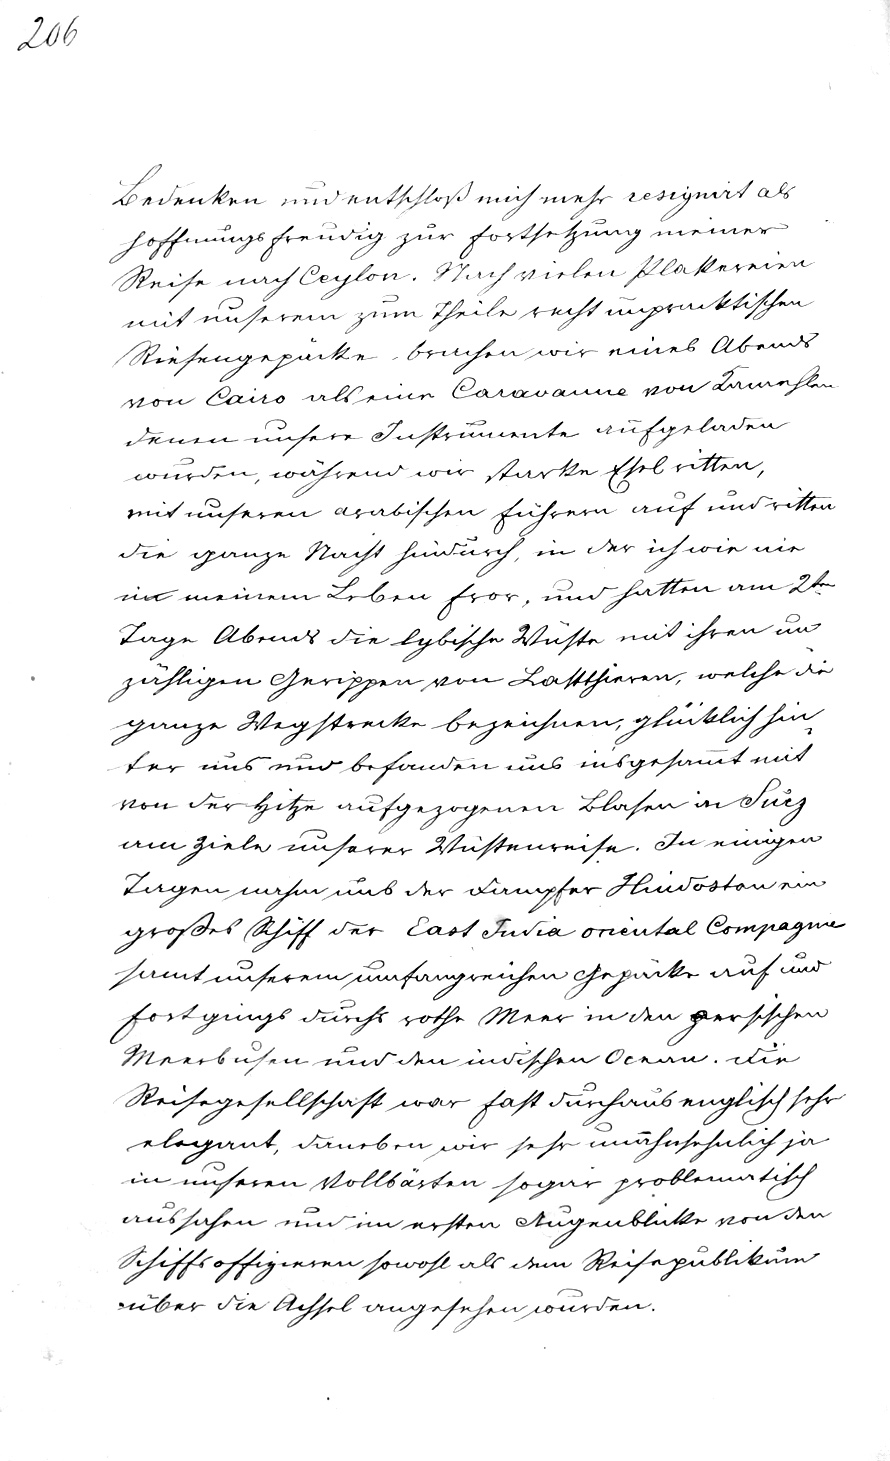 206
Bedenken und entschloß mich mehr resignirt als
hoffnungsfreudig zur Fortsetzung meiner
Reise nach Ceylon. Nach vielen Plakereien
mit unserem zum Theile recht unpracktischen
Riesengepäcke brachen wir eines Abends
von Cairo als eine Caravanne von Kamehlen
denen unsere Instrumente aufgeladen
wurden, während wir starke Esel ritten,
mit unseren arabischen Führern auf und ritten
die ganze Nacht hindurch, in der ich wie nie
in meinem Leben fror, und hatten am 2ten
Tage Abends die lybische Wüste mit ihren un
zähligen Gerippen von Lastthieren, welche die
ganze Wegstrecke bezeichnen, glücklich hin
ter uns und befanden uns insgesam̄t mit
von der Hitze aufgezogenen Blasen in Suez
am Ziele unserer Wüstenreise. In einigen
Tagen nahm uns der Dampfer Hindostan ein
großes Schiff der East India oriental Compagnie
samt unserem umfangreichen Gepäcke auf und
fort gings durchs rothe Meer in den persischen
Meerbusen und den indischen Ocean. Die
Reisegesellschaft war fast durchaus englisch sehr
elegant, daneben wir sehr unansehnlich ja
in unseren Vollbärten sogar problematisch
aussahen und im ersten Augenblicke von den
Schiffsoffizieren sowohl als dem Reisepublikum
über die Achsel angesehen wurden.